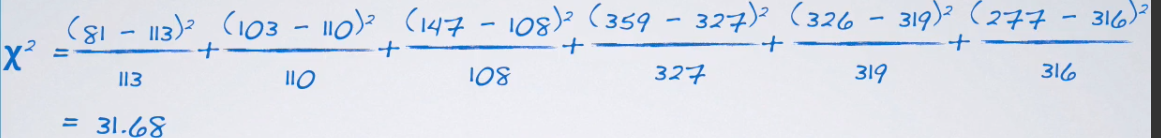 χ² = (81 - 113)²/113 + (103 - 110)²/110 + (147 - 108)²/108 + (359 - 327)²/327 + (326 - 319)²/319 + (277 - 316)²/316
= 31.68